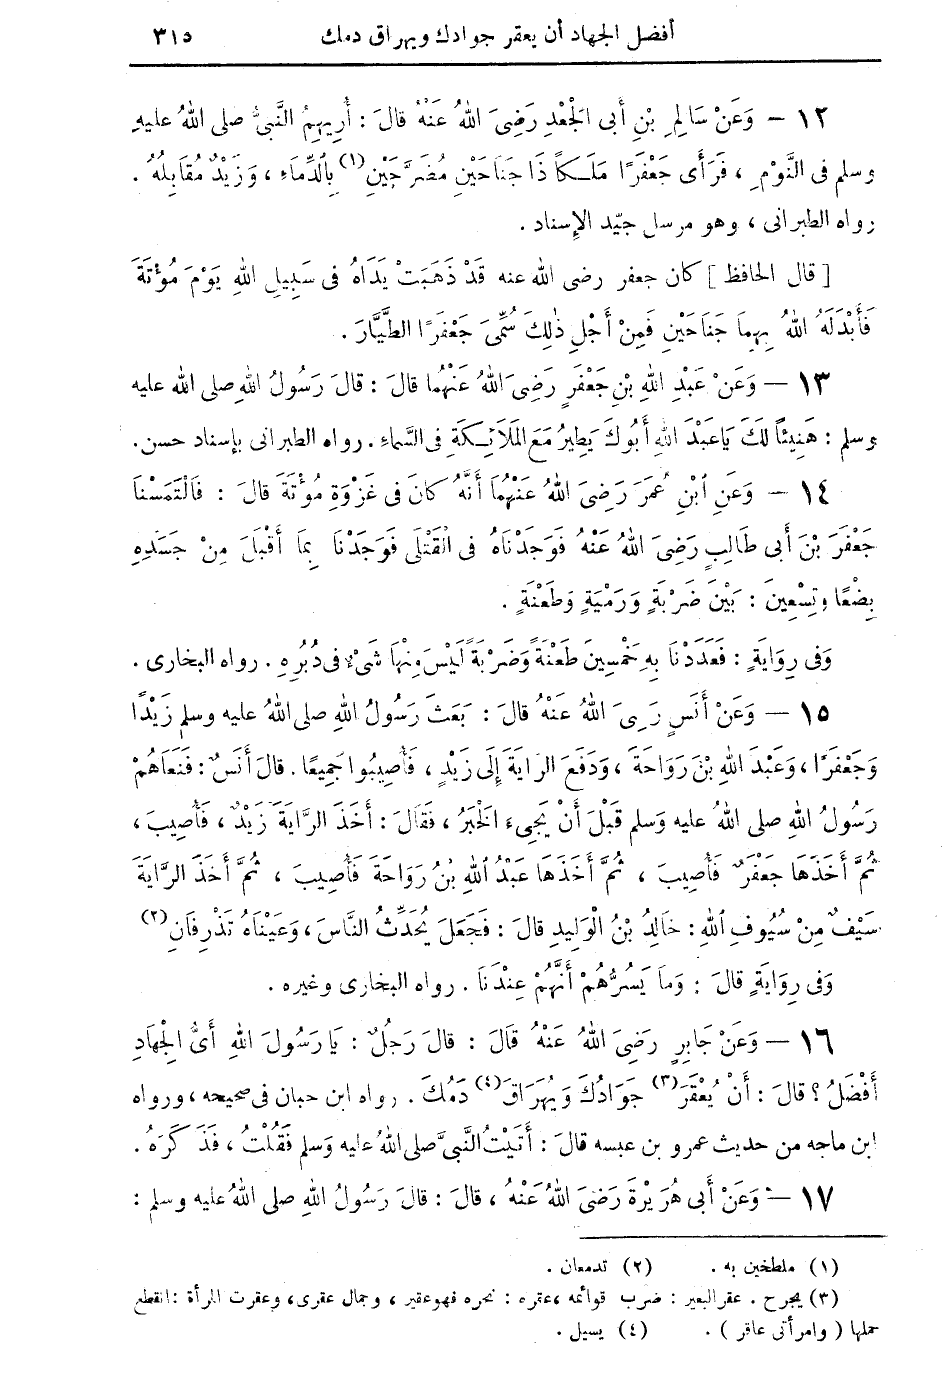 أفضل الجهاد أن يعقر جوادك ويهراق دمك ٣١٥
١٢ — وَعَنْ سَالِمِ بْنِ أَبِى الْجَعْدِ رَضِىَ اللهُ عَنْهُ قَالَ : أُرِيهِمُ النَّبِىُّ صلى اللهُ عليهِ
وسلم فى النَّوْمِ ، فَرَأَى جَعْفَرًا مَلَكًا ذَا جَنَاحَيْنِ مُضَرَّجَيْنِ (١) بِالدِّمَاءِ ، وَزَيْدٌ مُقَابِلُهُ .
رواه الطبرانى ، وهو مرسل جيّد الإسناد .
[ قال الحافظ ] كان جعفر رضى الله عنه قَدْ ذَهَبَتْ يَدَاهُ فى سَبِيلِ اللهِ يَوْمَ مُؤْتَةَ
فَأَبْدَلَهُ اللهُ بِهِمَا جَنَاحَيْنِ فَمِنْ أَجْلِ ذٰلِكَ سُمِّىَ جَعْفَرًا الطَّيَّارَ .
١٣ — وَعَنْ عَبْدِ اللهِ بْنِ جَعْفَرٍ رَضِىَ اللهُ عَنْهُمَا قالَ : قالَ رَسُولُ اللهِ صلى الله عليه
وسلم : هَنِيئًا لَكَ يَا عَبْدَ اللهِ أَبُوكَ يَطِيرُ مَعَ الْمَلَائِكَةِ فى السَّمَاءِ . رواه الطبرانى بإسناد حسن .
١٤ — وَعَنِ ٱبْنِ عُمَرَ رَضِىَ اللهُ عَنْهُمَا أَنَّهُ كانَ فى غَزْوَةِ مُؤْتَةَ قالَ : فَالْتَمَسْنَا
جَعْفَرَ بْنَ أَبى طَالِبٍ رَضِىَ اللهُ عَنْهُ فَوَجَدْنَاهُ فى الْقَتْلَى فَوَجَدْنَا بِمَا أَقْبَلَ مِنْ جَسَدِهِ
بِضْعًا وتِسْعِينَ : بَيْنَ ضَرْبَةٍ وَرَمْيَةٍ وَطَعْنَةٍ .
وَفى رِوَايَةٍ : فَعَدَدْنَا بِهِ خَمْسِينَ طَعْنَةً وَضَرْبَةً لَيْسَ مِنْهَا شَىْءٌ فى دُبُرِهِ . رواه البخارى .
١٥ — وَعَنْ أَنَسٍ رَ ىَ اللهُ عَنْهُ قالَ : بَعَثَ رَسُولُ اللهِ صلى اللهُ عليه وسلم زَيْدًا
وَجَعْفَرًا ، وَعَبْدَ اللهِ بْنَ رَوَاحَةَ ، وَدَفَعَ الرَايَةَ إِلَى زَيْدٍ ، فَأُصِيبُوا جَمِيعًا . قالَ أَنَسٌ : فَنَعَاهُمْ
رَسُولُ اللهِ صلى اللهُ عليه وَسلم قَبْلَ أَنْ يَجِىءَ الْخَبَرُ ، فَقَالَ : أَخَذَ الرَّايَةَ زَيْدٌ ، فَأُصِيبَ ،
ثُمَّ أَخَذَهَا جَعْفَرٌ فَأُصِيبَ ، ثُمَّ أَخَذَهَا عَبْدُ ٱللهِ بْنُ رَوَاحَةَ فَأُصِيبَ ، ثُمَّ أَخَذَ الرَّايَةَ
سَيْفٌ مِنْ سُيُوفِ ٱللهِ : خَالِدُ بْنُ الْوَلِيدِ قالَ : فَجَعَلَ يُحَدِّثُ النَّاسَ ، وَعَيْنَاهُ تَذْرِفَانِ (٢)
وَفى رِوَايَةٍ قالَ : وَمَا يَسُرُّهُمْ أَنَّهُمْ عِنْدَنَا . رواه البخارى وغيره .
١٦ — وَعَنْ جَابِرٍ رَضِىَ اللهُ عَنْهُ قَالَ : قالَ رَجُلٌ : يَا رَسُولَ اللهِ أَىُّ الْجِهَادِ
أَفْضَلُ ؟ قالَ : أَنْ يُعْقَرَ (٣) جَوَادُكَ وَيُهَرَاقَ (٤) دَمُكَ . رواه ابن حبان فى صحيحه ، ورواه
ابن ماجه من حديث عمرو بن عبسه قالَ : أَتَيْتُ النَّبِىَّ صلى اللهُ عليه وَسلم فَقُلْتُ ، فَذَكَرَهُ .
١٧ — وَعَنْ أَبى هُرَيْرَةَ رَضِىَ اللهُ عَنْهُ ، قالَ : قالَ رَسُولُ اللهِ صلى اللهُ عليه وسلم :
(١) ملطخين به . (٢) تدمعان .
(٣) يجرح . عقر البعير : ضرب قوائمه ، عقره : نحره فهو عقير ، وجمال عقرى ، وعقرت المرأة : انقطع
حملها ( وامرأتى عاقر ) . (٤) يسيل .